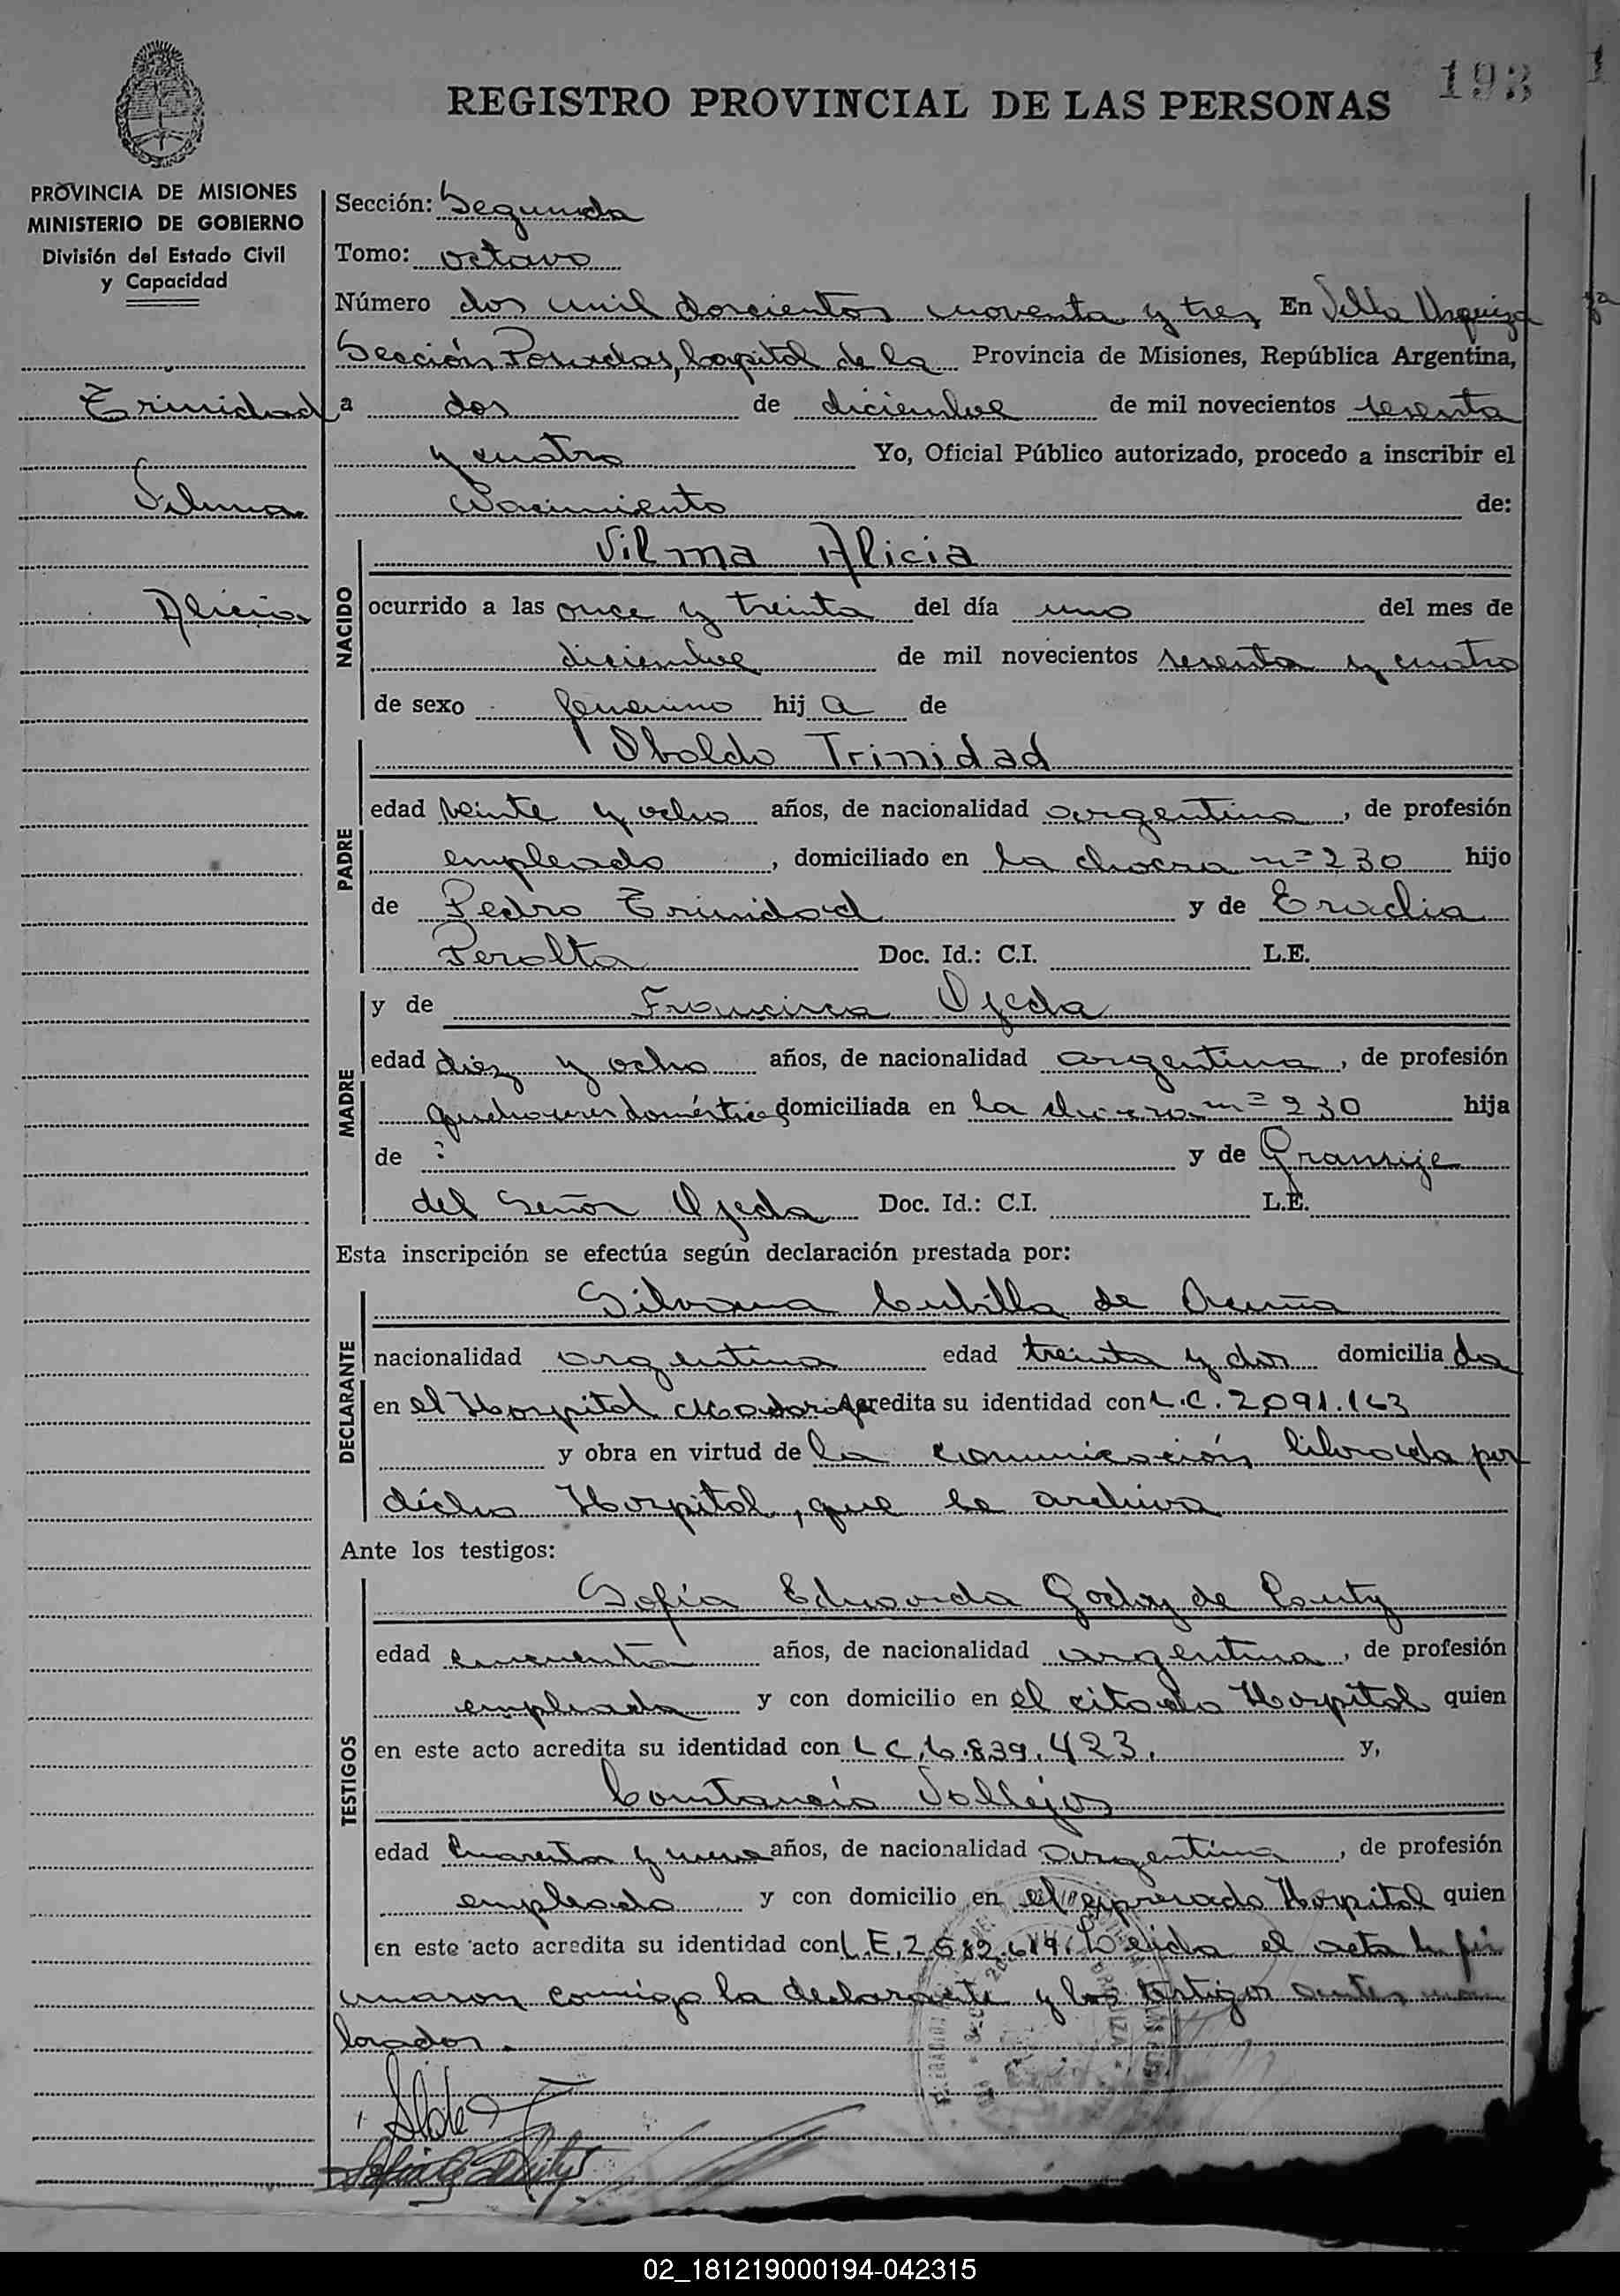 193
REGISTRO PROVINCIAL DE LAS PERSONAS
PROVINCIA DE MISIONES
MINISTERIO DE GOBIERNO
División del Estado Civil
y Capacidad
Trinidad
Vilma
Alicia
Sección: Segunda
Tomo: octavo
Número dos mil doscientos noventa y tres En Villa Urquiza
Sección Posadas, Capital de la Provincia de Misiones, República Argentina,
a dos de diciembre de mil novecientos sesenta
y cuatro Yo, Oficial Público autorizado, procedo a inscribir el
Nacimiento de:
NACIDO
Vilma Alicia
ocurrido a las once y treinta del día uno del mes de
diciembre de mil novecientos sesenta y cuatro
de sexo femenino hij a de
PADRE
Oboldo Trinidad
edad veinte y ocho años, de nacionalidad argentina, de profesión
empleado, domiciliado en la chacra nº 230 hijo
de Pedro Trinidad y de Eradia
Peralta Doc. Id.: C.I. L.E.
MADRE
y de Francisca Ojeda
edad diez y ocho años, de nacionalidad argentina, de profesión
quehaceres domésticos domiciliada en la chacra nº 230 hija
de ? y de
del Señor Ojeda Doc. Id.: C.I. L.E.
Esta inscripción se efectúa según declaración prestada por:
DECLARANTE
Silvana Cubilla de Acuña
nacionalidad argentina edad treinta y dos domicilia da
en el Hospital Madariaga Acredita su identidad con L.C. 2.091.163
y obra en virtud de la comunicación librada por
dicho Hospital, que se archiva
Ante los testigos:
TESTIGOS
Sofía Eduarda Godoy de
edad cincuenta años, de nacionalidad argentina, de profesión
empleada y con domicilio en el citado Hospital quien
en este acto acredita su identidad con L C. 6.839.423. y,
Constancio Vallejos
edad cuarenta y nueve años, de nacionalidad argentina, de profesión
empleado y con domicilio en el expresado Hospital quien
en este acto acredita su identidad con L.E. 2.582.619. Leída el acta la fir
maron conmigo la declarante y los testigos antes nom
brados.
02_181219000194-042315